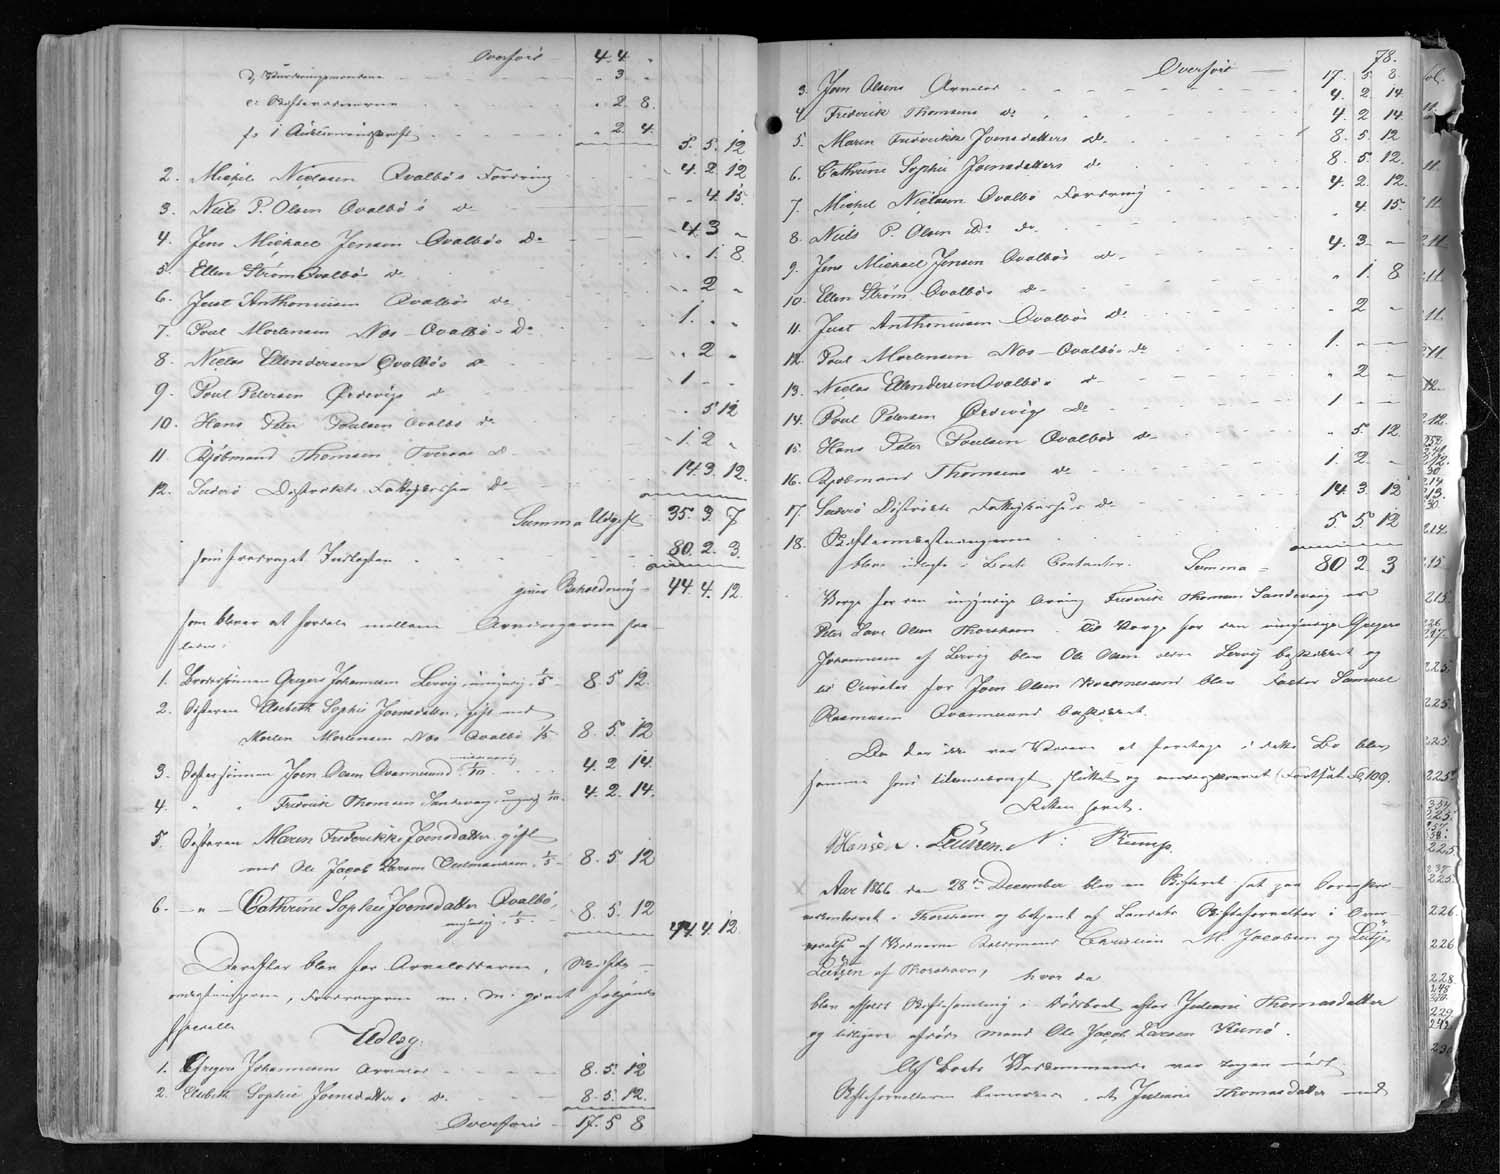 Overført — 4. 4 "
d, Vurderingsmændene - - - " 3 "
e, Skifte - - - " 2. 8.
f, 1 Auctions - - - " 2. 4.
5. 5. 12
2. Michel Niclasen Qvalbøs Fordring - - 4. 2. 12
3. Niels P. Olsen Qvalbø's do - - " 4. 15.
4. Jens Michael Jensen Qvalbøs Do - - 4. 3 "
5. Ellen Strøm Qvalbøs do - - " 1. 8.
6. Just Anthoniusen Qvalbøs do - - " 2 "
7. Poul Mortensen Næs - Qvalbøs Do - - 1. " "
8. Niclas Ellendersen Qvalbøs do - - " 2 "
9. Poul Petersen Ørdevigs do - - 1 " "
10. Hans Peter Poulsen Qvalbø do - - " 5 12
11 Kjøbmand Thomsen Tveraa do - - 1. 2 "
12. Suderø Districts Fattigkasse do - - 14. 3. 12.
Summa Udgift 35. 3. 7
som fradraget Indtægten - - - 80. 2. 3.
giver Beholdning - 44. 4. 12
som bliver at fordele mellem Arvingerne saa-
ledes:
1. Brodersønnen Gregers Johannesen Lervig, umyndig 1/5 - 8. 5. 12.
2. Søsteren Elsebeth Sophie Joensdatter, gift med
Morten Mortensen Næs - Qvalbø 1/5 8. 5. 12
3. Søstersønnen Joen Olsen Qvannesund 1/10 - - 4. 2 14
4. " " Frederik Thomsen Sandevaag, umyndig 1/10. 4. 2. 14.
5. Søsteren Maren Frederikke Joensdatter gift
med Ole Jacob Larsen 1/5 - 8. 5. 12
6. - " - Cathrine Sophie Joensdatter Qvalbø,
myndig - 1/5 - 8. 5. 12
44. 4. 12
Derefter blev for Arvelodderne, Skifte-
omkostningerne, Fordringerne m. m. gjort følgende
specielle
Udlæg:
1. Gregers Johannesens Arvelod - - - 8. 5. 12
2. Elsebeth Sophie Joensdatters do - - 8. 5. 12.
Overføres - 17. 5 8
78.
Overført — 17. 5 8.
3. Joen Olsens Arvelod - - - 4. 2 14.
4 Frederik Thomsens do - - - 4. 2 14.
5. Maren Frederikke Joensdatters do - - 8. 5. 12
6. Cathrine Sophie Joensdatters do - - 8. 5. 12.
7. Michel Niclasen Qvalbø Fordring - - 4. 2. 12.
8. Niels P. Olsen do do - - " 4. 15.
9. Jens Michael Jensen Qvalbøs do - - 4. 3 -
10. Ellen Strøm Qvalbøs do - - " 1. 8
11. Just Anthoniusen Qvalbøs do - - " 2 -
12. Poul Mortensen Næs - Qvalbøs do - - 1. - -
13. Niclas Ellendersen Qvalbøs do - - " 2 -
14. Poul Petersen Ørdevigs do - - 1 - -
15. Hans Peter Poulsen Qvalbøs do - - " 5. 12
16. Kjøbmand Thomsens do - - 1. 2 -
17. Suderø Districts Fattigkasses do - - 14. 3. 12
18. Skifteomkostningerne - - - 5. 5. 12
blev udlagt i Boets Contanter. Summa = 80 2 3
Værge for den umyndige Arving Frederik Thomsen Sandevaag er
Peter Lave Olsen Thorshavn. Til Værge for den umyndige Gregers
Johannesen af Lervig blev Ole Olsen Lervig beskikket og
til Curator for Joen Olsen Qvannesund blev Samuel
Rasmusen Qvannesund beskikket.
Da der ikke var Videre at foretage i dette Bo blev
samme saaledes tilendebragt sluttet og underskrevet (Fortsat Fol. 109.
Retten hævet.
Hansen. Lützen. N: Rump.
Aar 1866 den 28de December blev en Skifteret sat paa Sorenskri-
vercontoret i Thorshavn og betjent af Landets Skifteforvalter i Over-
værelse af Vidnerne Christian M. Jacobsen og Lütje
Lützen af Thorshavn, hvor da
blev afholdt Skiftesamling i Dødsboet efter Juliane Thomasdatter
og tidligere afdøde Mand Ole Jacob Larsen Kunø.
Af Boets Vedkommende var Ingen mødt
Skifteforvalteren bemærkede, at Juliane Thomasdatter med